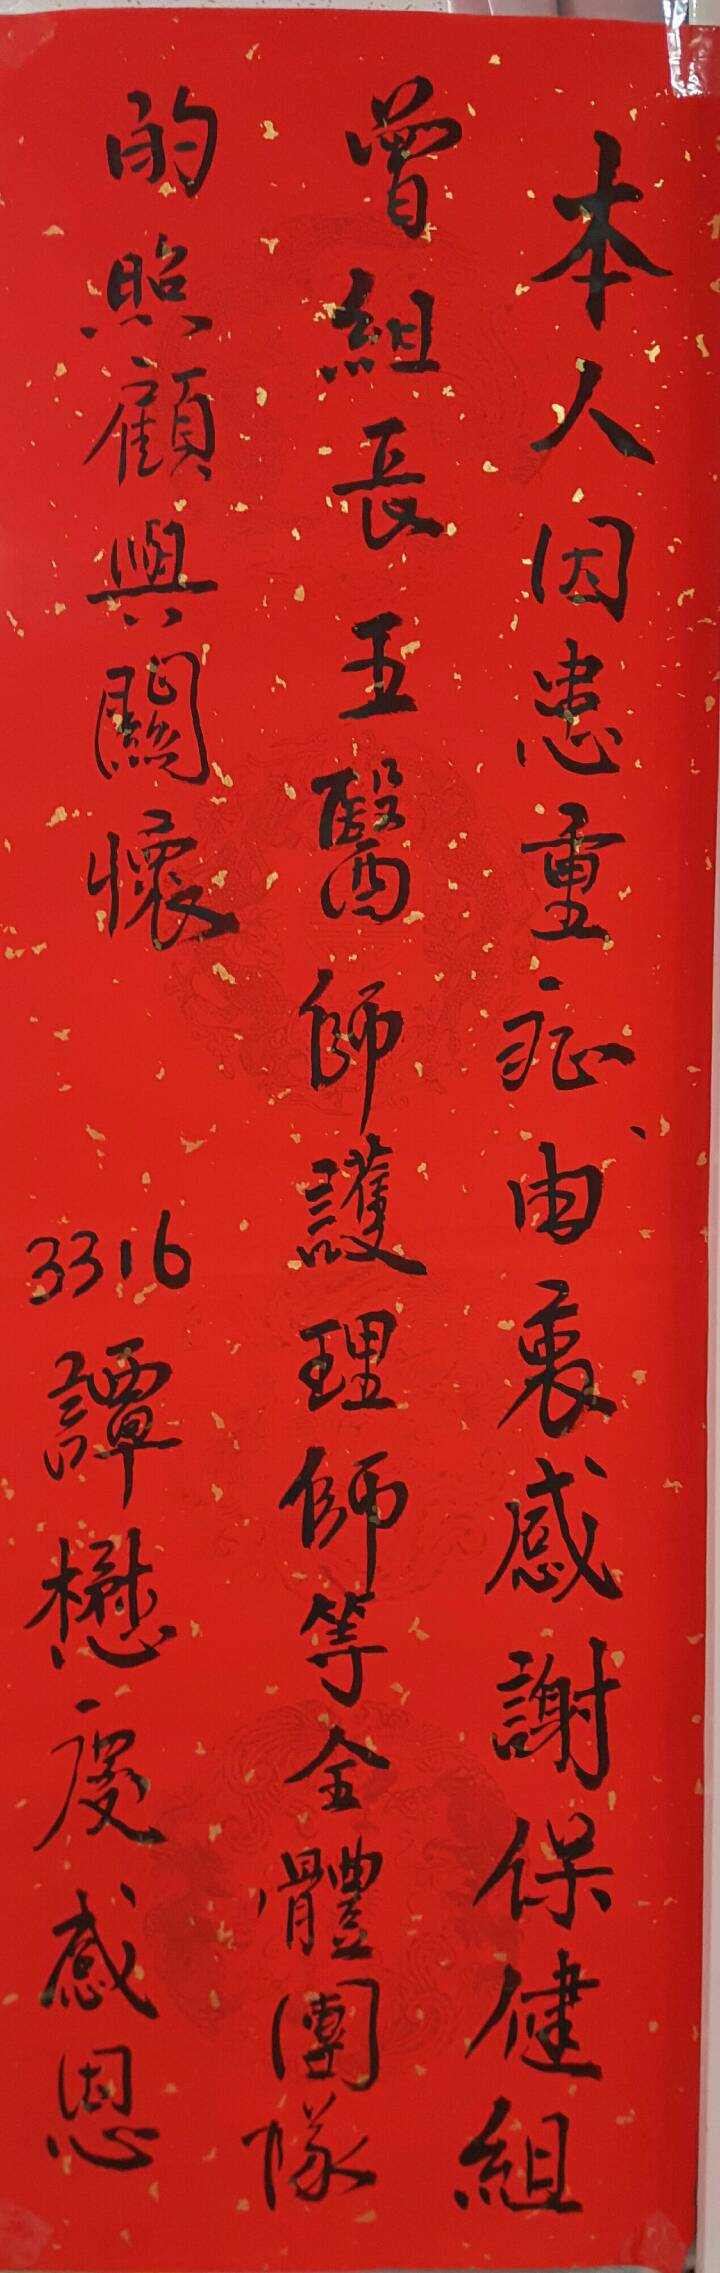 本人因患重症、由衷感謝保健組
曾組長王醫師護理師等全體團隊
的照顧與關懷
3316譚懋慶感恩